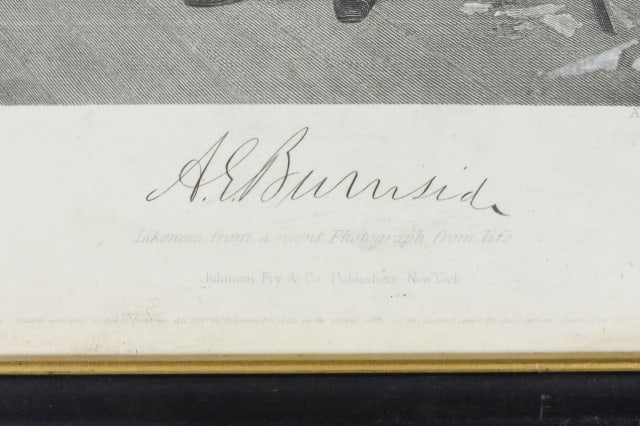 A.E. Burnside
Likeness from a recent Photograph from life.
Johnson, Fry & Co. Publishers, New York.